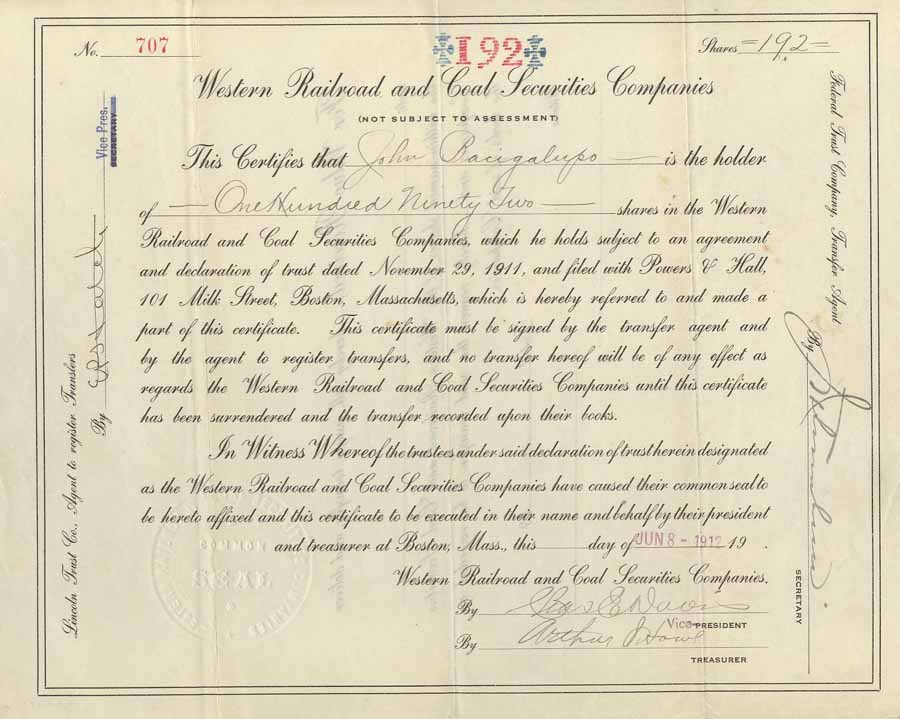 No. 707
192
Shares =192=
Western Railroad and Coal Securities Companies
(NOT SUBJECT TO ASSESSMENT)
This Certifies that John Bacigalupo is the holder
of One Hundred Ninety Two shares in the Western
Railroad and Coal Securities Companies, which he holds subject to an agreement
and declaration of trust dated November 29, 1911, and filed with Powers & Hall,
101 Milk Street, Boston, Massachusetts, which is hereby referred to and made a
part of this certificate. This certificate must be signed by the transfer agent and
by the agent to register transfers, and no transfer hereof will be of any effect as
regards the Western Railroad and Coal Securities Companies until this certificate
has been surrendered and the transfer recorded upon their books.
In Witness Whereof the trustees under said declaration of trust herein designated
as the Western Railroad and Coal Securities Companies have caused their common seal to
be hereto affixed and this certificate to be executed in their name and behalf by their president
and treasurer at Boston, Mass., this day of JUN 8 - 1912 19 .
Western Railroad and Coal Securities Companies.
By
Vice PRESIDENT
By Arthur
TREASURER
Lincoln Trust Co., Agent to register Transfers
By
Vice-Pres.
SECRETARY
Federal Trust Company, Transfer Agent
By
SECRETARY
SEAL